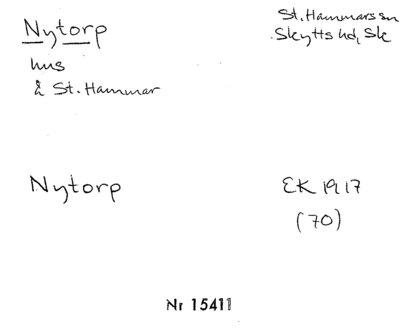 Nytorp
St. Hammars sn
Skytts hd, Sk
hus
å St. Hammar
Nytorp
EK 1917
(70)
Nr 15411